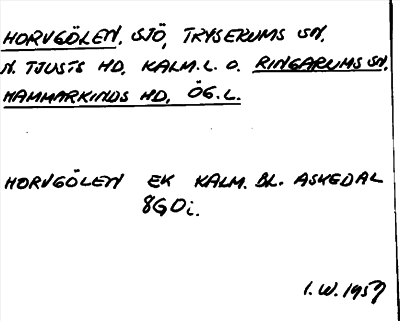 HORVGÖLEN, SJÖ, TRYSERUMS SN,
N. TJUSTS HD, KALM. L. O. RINGARUMS SN,
HAMMARKINDS HD, ÖG. L.
HORVGÖLEN EK KALM. BL. ASKEDAL
8G Di.
I. W. 1957